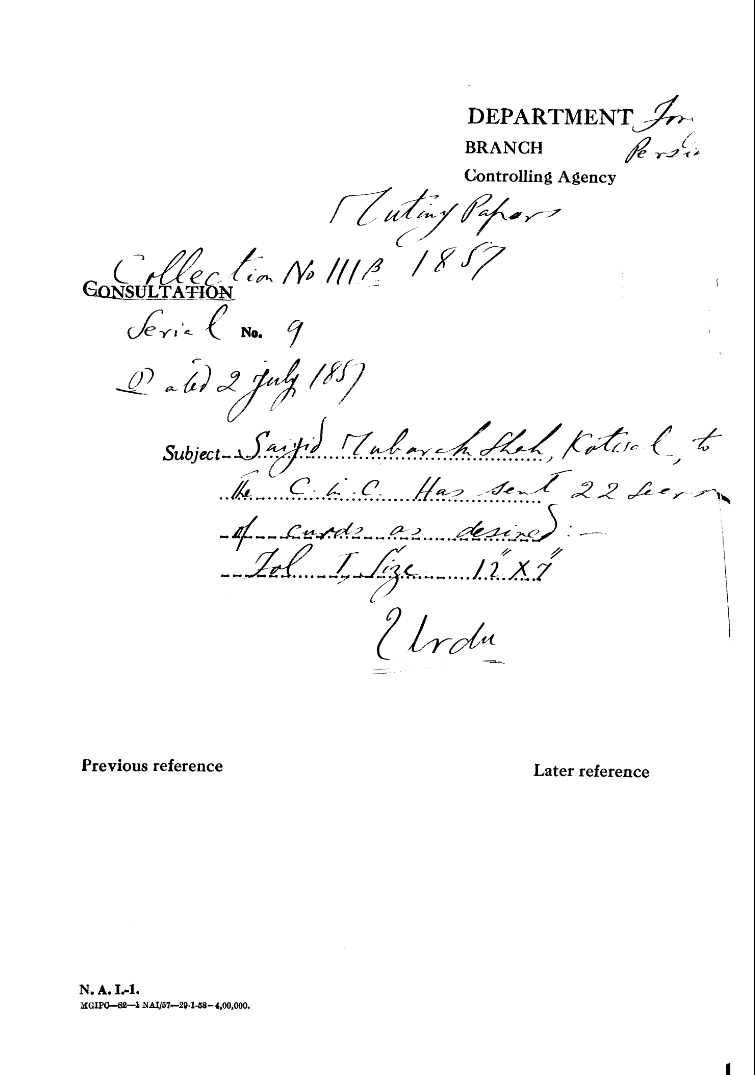 DEPARTMENT For.
BRANCH Persi
Controlling Agency
Mutiny Papers
Collection No 111B 1857
CONSULTATION
Serial No. 9
Dated 2 July 1857
Subject Saiyid Mubarak Shah, Kotwal, to
the C. in C. Has sent 22 seers
of curds as desired:—
Fol I, Size 12" X 7"
Urdu
Previous reference Later reference
N. A. I.-1.
MGIPC—S2—1 NAI/57—29-1-58—4,00,000.